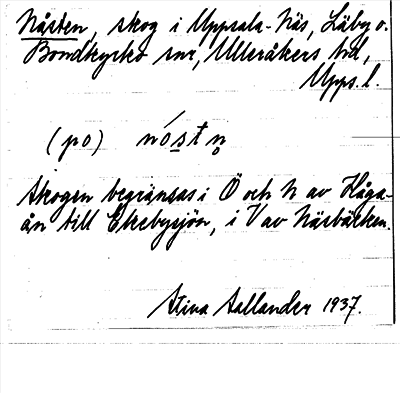 Nåsten, skog i Uppsala-Näs, Läby o.
Bondkyrko snr, Ulleråkers hd,
Upps. l.
(po) nó̱stn̥
Skogen begränsas i Ö och N av Håga-
ån till Ekebysjön, i V av Näsbäcken.
Stina Sallander 1937.